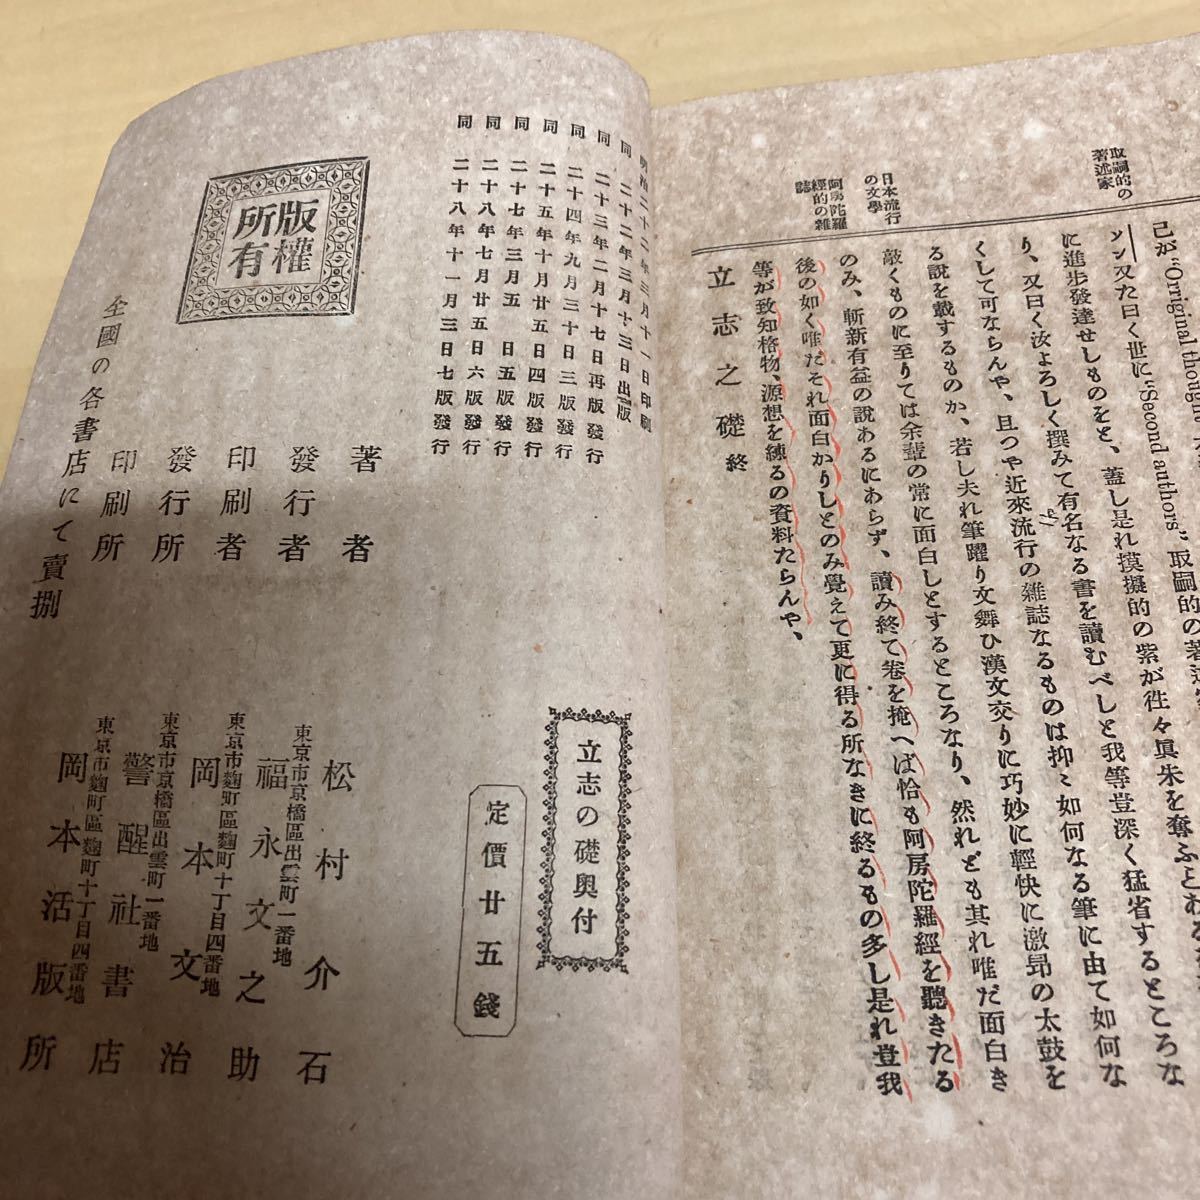 取嗣的の
著述家
日本流行
の文學
阿房陀羅
經的の雜
誌
己が“Orriginal though
ソン又た曰く世に“Second authors”取嗣的の著述
に進歩發達せしものをと、蓋し是れ摸擬的の紫が徃々眞朱を奪ふと
り、又曰く汝よろしく撰みて有名なる書を讀むべしと我等豈深く猛省するところな
くして可ならんや、且つや近來流行の雜誌なるものは抑〻如何なる筆に由て如何な
る說を載するものか、若し夫れ筆躍り文舞ひ漢文交りに巧妙に輕快に激昻の太鼓を
敲くものに至りては余輩の常に面白しとするところなり、然れども其れ唯だ面白き
のみ、斬新有益の說あるにあらず、讀み終て卷を掩へば恰も阿房陀羅經を聽きたる
後の如く唯だそれ面白かりしとのみ覺えて更に得る所なきに終るもの多し是れ豈我
等が致知格物、源想を練るの資料たらんや、
立志之礎終
明治二十二年三月十一日印刷
同 二十二年三月十三日出版
同 二十三年二月十七日再版發行
同 二十四年九月三十日三版發行
同 二十五年十月廿五日四版發行
同 二十七年三月五日五版發行
同 二十八年七月廿五日六版發行
同 二十八年十一月三日七版發行
版權
所有
立志の礎奥付
定價廿五錢
著者 松村介石
東京市京橋區出雲町一番地
發行者 福永文之助
東京市麴町區麴町十丁目四番地
印刷者 岡本文治
東京市京橋區出雲町一番地
發行所 警醒社書店
東京市麴町區麴町十丁目四番地
印刷所 岡本活版所
全國の各書店にて賣捌